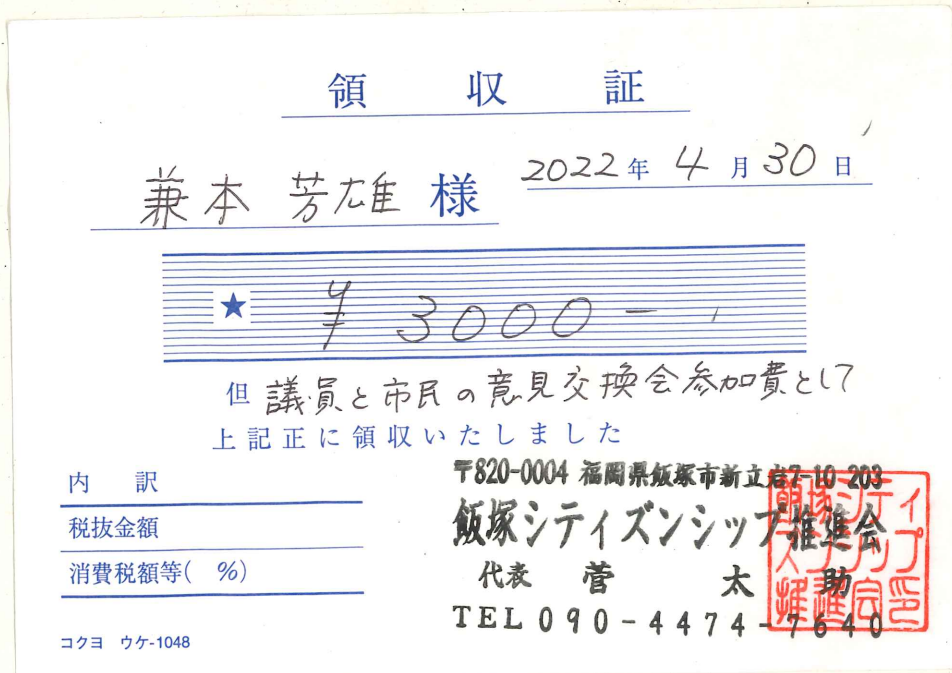 領収証
2022年4月30日
兼本 芳雄 様
★ ¥3000-
但 議員と市民の意見交換会参加費として
上記正に領収いたしました
内訳
税抜金額
消費税額等( %)
コクヨ ウケ-1048
〒820-0004 福岡県飯塚市新立岩7-10-203
飯塚シティズンシップ推進会
代表 菅 太助
TEL 090-4474-7640
飯塚シティズンシップ推進会印